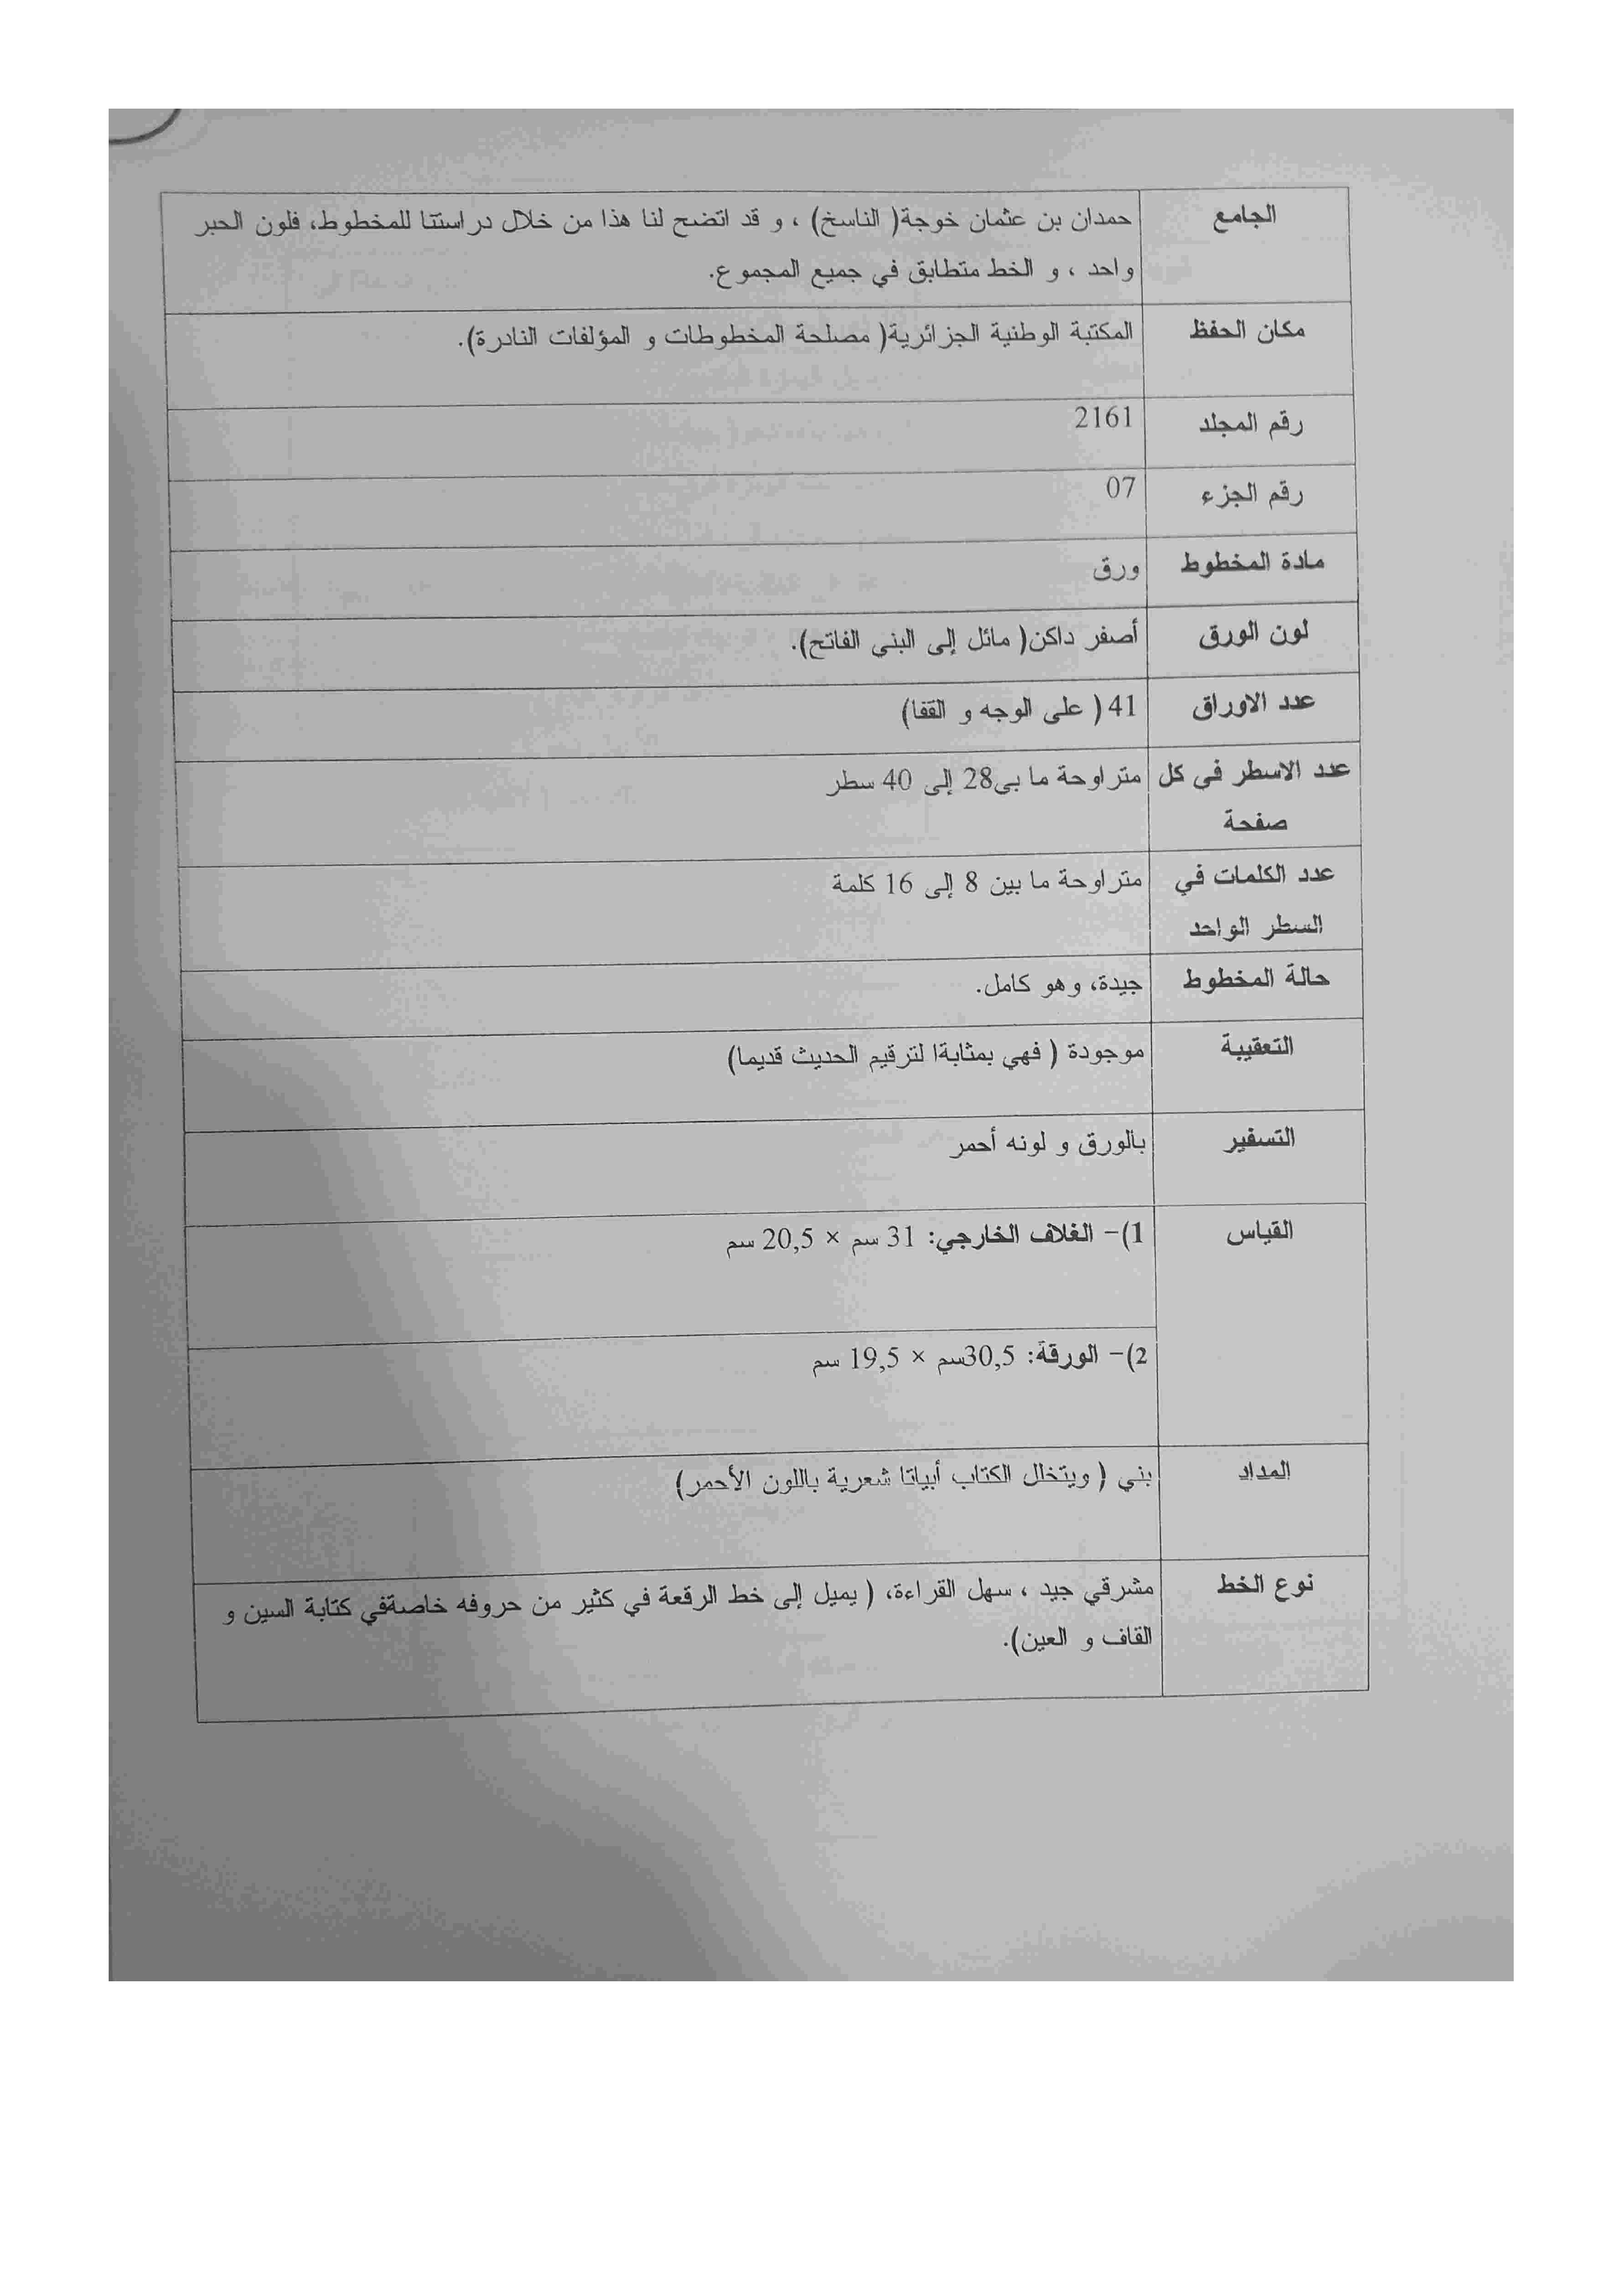 الجامع
حمدان بن عثمان خوجة( الناسخ) ، و قد اتضح لنا هذا من خلال دراستنا للمخطوط، فلون الحبر
واحد ، و الخط متطابق في جميع المجموع.
مكان الحفظ
المكتبة الوطنية الجزائرية( مصلحة المخطوطات و المؤلفات النادرة).
رقم المجلد
2161
رقم الجزء
07
مادة المخطوط
ورق
لون الورق
أصفر داكن( مائل إلى البني الفاتح).
عدد الاوراق
41 ( على الوجه و القفا)
عدد الاسطر في كل
صفحة
متراوحة ما بى28 إلى 40 سطر
عدد الكلمات في
السطر الواحد
متراوحة ما بين 8 إلى 16 كلمة
حالة المخطوط
جيدة، وهو كامل.
التعقيبة
موجودة ( فهي بمثابةا لترقيم الحديث قديما)
التسفير
بالورق و لونه أحمر
القياس
1)- الغلاف الخارجي: 31 سم × 20,5 سم
2)- الورقة: 30,5سم × 19,5 سم
المداد
بني ( ويتخلل الكتاب أبياتا شعرية باللون الأحمر)
نوع الخط
مشرقي جيد ، سهل القراءة، ( يميل إلى خط الرقعة في كثير من حروفه خاصةفي كتابة السين و
القاف و العين).